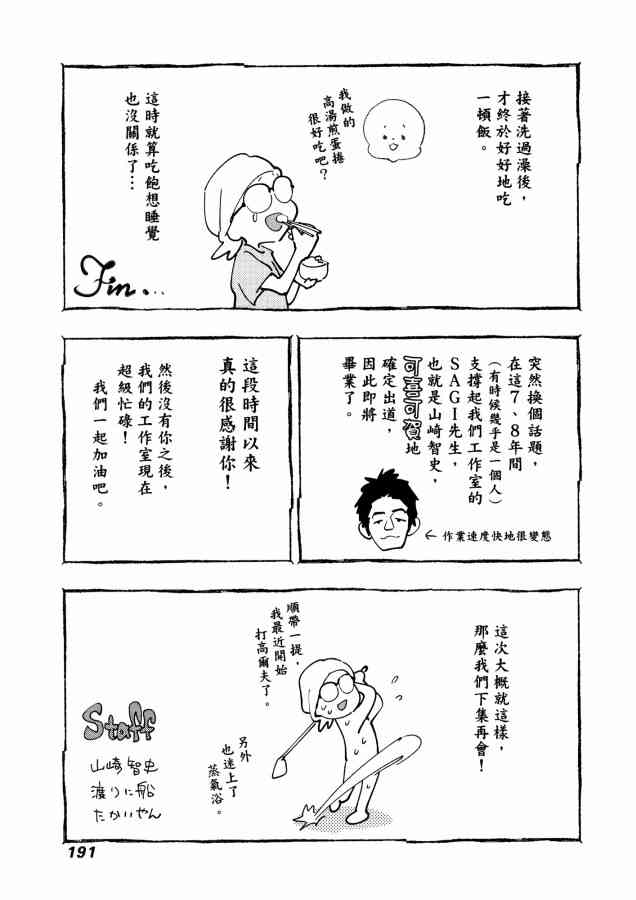 接著洗過澡後，
才終於好好地吃
一頓飯。
我做的
高湯煎蛋捲
很好吃吧？
這時就算吃飽想睡覺
也沒關係了…
Fin....
突然換個話題，
在這7、8年間
（有時候幾乎是一個人）
支撐起我們工作室的
SAGI先生，
也就是山崎智史，
可喜可賀地
確定出道，
因此即將
畢業了。
← 作業速度快地很變態
這段時間以來
真的很感謝你！
然後沒有你之後，
我們的工作室現在
超級忙碌！
我們一起加油吧。
這次大概就這樣，
那麼我們下集再會！
順帶一提，
我最近開始
打高爾夫了。
另外
也迷上了
蒸氣浴。
Staff
山崎智史
渡りに船
たかいやん
191